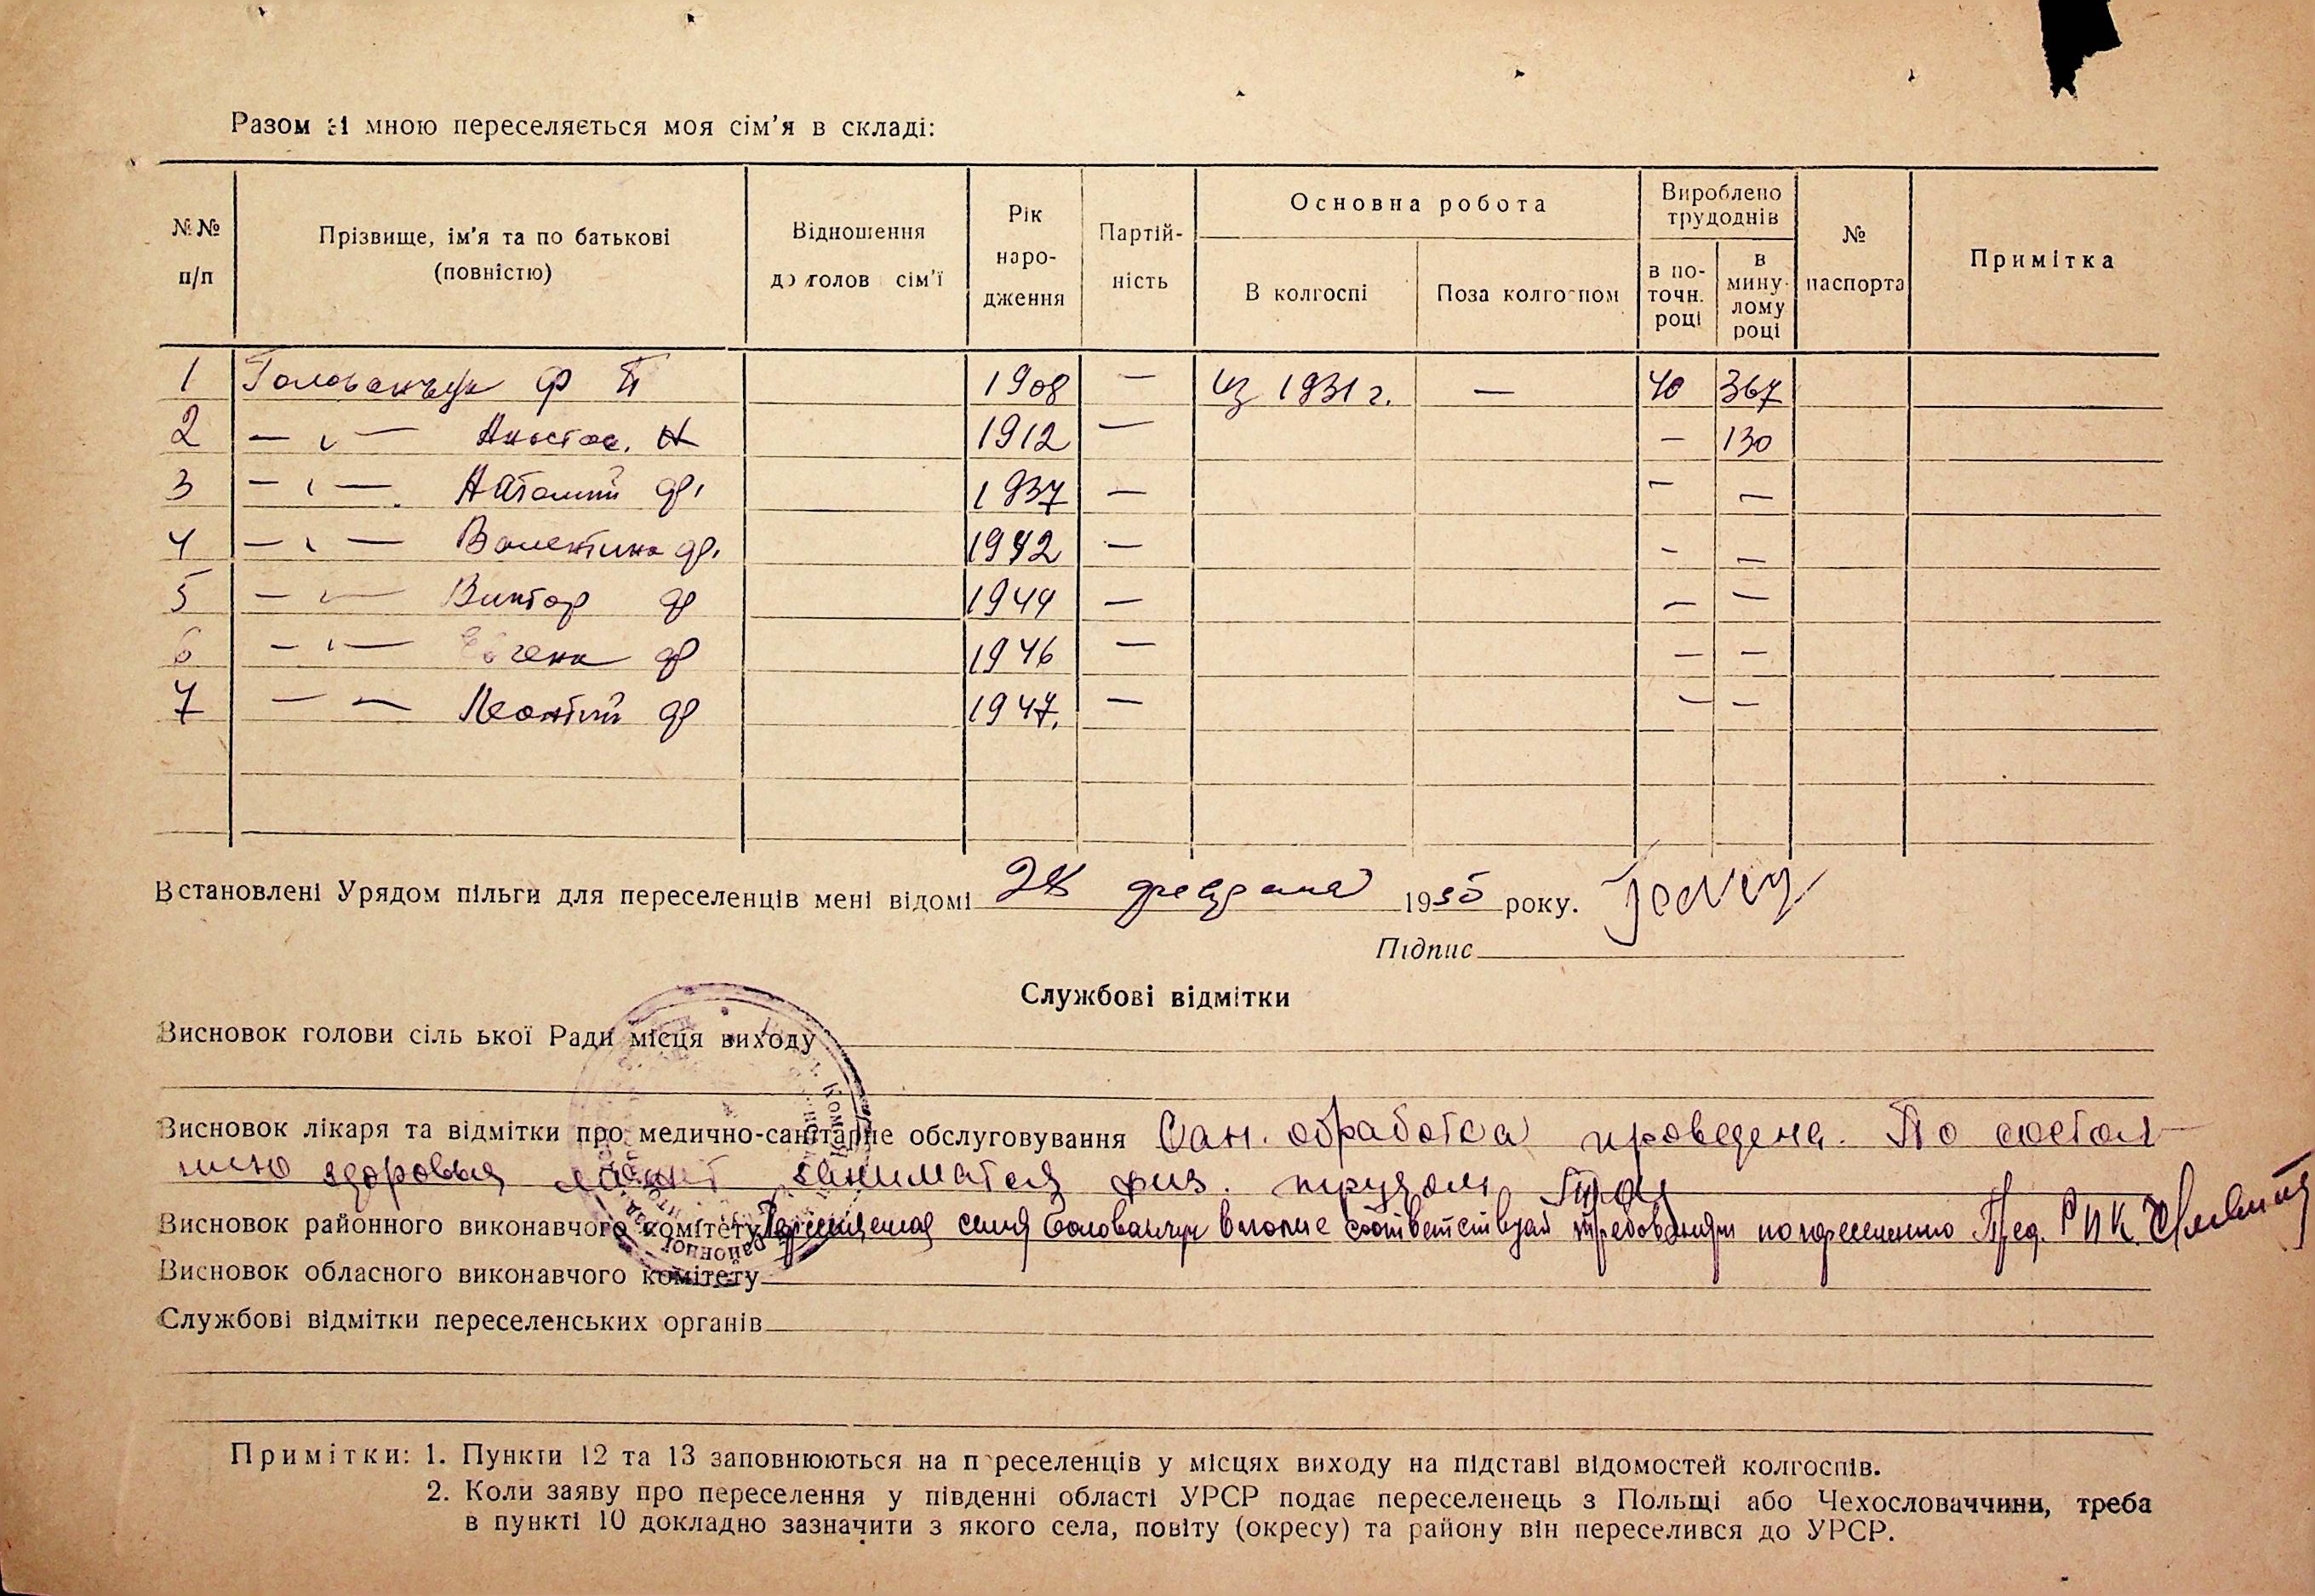 Разом зі мною переселяється моя сім'я в складі:
№№ п/п
Прізвище, ім'я та по батькові (повністю)
Відношення до голов сім'ї
Рік народження
Партійність
Основна робота
В колгоспі
Поза колгоспом
Вироблено трудоднів
в поточн. році
в минулому році
№ паспорта
Примітка
1 Голованчук Ф П 1908 — из 1931 г. — 40 367
2 — " — Анастас. Н 1912 — — 130
3 — " — Анатолий Ф. 1937 — — —
4 — " — Валентина Ф. 1942 — — —
5 — " — Виктор Ф 1944 — — —
6 — " — Евгения Ф 1946 — — —
7 — — Леонтий Ф 1947. — — —
Встановлені Урядом пільги для переселенців мені відомі 28 февраля 1950 року.
Підпис
Службові відмітки
Висновок голови сіль ької Ради місця виходу
Висновок лікаря та відмітки про медично-санітарне обслуговування Сан. обработка проведена. По состоя-
нию здоровья может заниматся физ. трудом
Висновок районного виконавчого комітету семья Голованчук вполне соответствует требованиям по переселению Пред. РИК.
Висновок обласного виконавчого комітету
Службові відмітки переселенських органів
Примітки: 1. Пункти 12 та 13 заповнюються на п реселенців у місцях виходу на підставі відомостей колгоспів.
2. Коли заяву про переселення у південні області УРСР подає переселенець з Польщі або Чехословаччини, треба
в пункті 10 докладно зазначити з якого села, повіту (окресу) та району він переселився до УРСР.